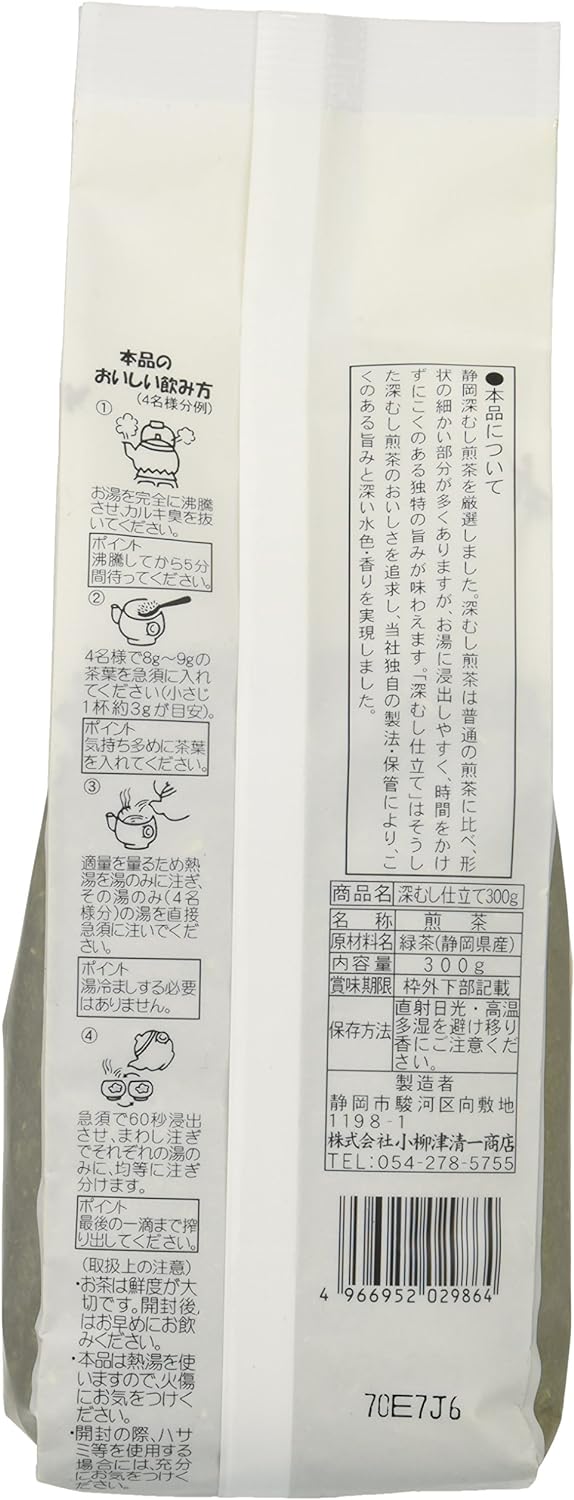 本品の
おいしい飲み方
(4名様分例)
①
お湯を完全に沸騰
させ、カルキ臭を抜
いてください。
ポイント
沸騰してから5分
間待ってください。
②
4名様で8g〜9gの
茶葉を急須に入れ
てください(小さじ
1杯約3gが目安)。
ポイント
気持ち多めに茶葉
を入れてください。
③
適量を量るため熱
湯を湯のみに注ぎ、
その湯のみ(4名
様分)の湯を直接
急須に注いでくだ
さい。
ポイント
湯冷ましする必要
はありません。
④
急須で60秒浸出
させ、まわし注ぎ
でそれぞれの湯の
みに、均等に注ぎ
分けます。
ポイント
最後の一滴まで搾
り出してください。
(取扱上の注意)
・お茶は鮮度が大
切です。開封後、
はお早めにお飲
みください。
・本品は熱湯を使
いますので、火傷
にお気をつけく
ださい。
・開封の際、ハサ
ミ等を使用する
場合には、充分
にお気をつけく
●本品について
静岡深むし煎茶を厳選しました。深むし煎茶は普通の煎茶に比べ、形
状の細かい部分が多くありますが、お湯に浸出しやすく、時間をかけ
ずにこくのある独特の旨みが味わえます。「深むし仕立て」はそうし
た深むし煎茶のおいしさを追求し、当社独自の製法・保管により、こ
くのある旨みと深い水色・香りを実現しました。
商品名 深むし仕立て300g
名称 煎茶
原材料名 緑茶(静岡県産)
内容量 300g
賞味期限 枠外下部記載
保存方法 直射日光・高温
多湿を避け移り
香にご注意くだ
さい。
製造者
静岡市駿河区向敷地
1198-1
株式会社小柳津清一商店
TEL:054-278-5755
4 966952 029864
70E7J6